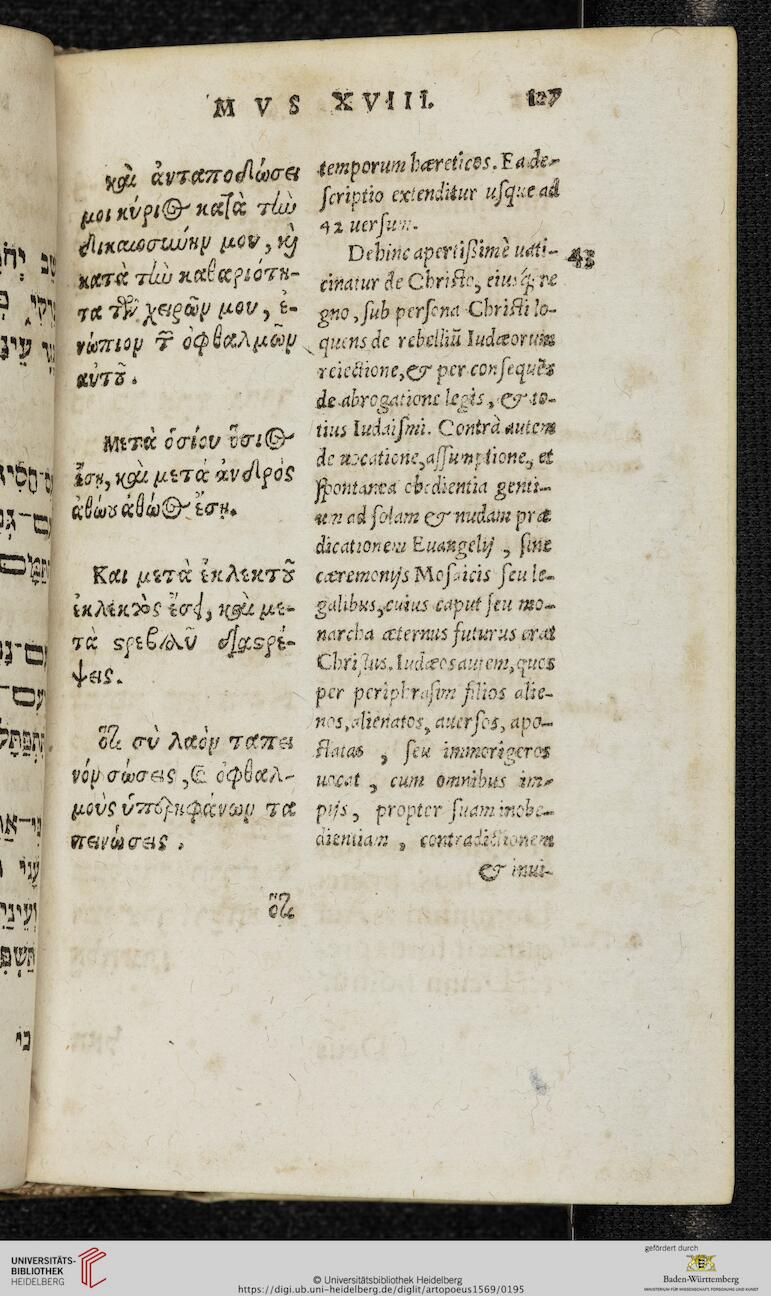 MVS XVIII. 127
καὶ ἀνταποδώσει
μοι κύριος κατὰ τὴν
δικαιοσύνην μου, καὶ
κατὰ τὴν καθαριότη-
τα τῶν χειρῶν μου, ἐ-
νώπιον τῶν ὀφθαλμῶν
αὐτοῦ.
Μετὰ ὁσίου ὅσιος
ἔσῃ, καὶ μετὰ ἀνδρὸς
ἀθώου ἀθῶος ἔσῃ.
Και μετὰ ἐκλεκτοῦ
ἐκλεκτὸς ἔσῃ, καὶ με-
τὰ στρεβλοῦ διαστρέ-
ψεις.
ὅτι σὺ λαὸν ταπει
νὸν σώσεις, καὶ ὀφθαλ-
μοὺς ὑπερηφάνων τα
πεινώσεις.
ὅτι
temporum hæreticos. Ea de-
scriptio extenditur usque ad
42 uersum.
Dehinc apertißimè uati- 43
cinatur de Christo, eiusq́; re
gno, sub persona Christi lo-
quens de rebelliũ Iudæorum
reiectione, & per consequẽs
de abrogatione legis, & to-
tius Iudaismi. Contrà autem
de uocatione, assumptione, et
spontanea obedientia genti-
um ad solam & nudam præ
dicationem Euangelij, sine
cæremonijs Mosaicis seu le-
galibus, cuius caput seu mo-
narcha æternus futurus erat
Christus. Iudæos autem, quos
per periphrasim filios alie-
nos, alienatos, auersos, apo-
statas, seu immorigeros
uocat, cum omnibus im-
pijs, propter suam inobe-
dientiam, contradictionem
& inui-
שֵׁב יְה
עֵינ
כִּי
UNIVERSITÄTS-
BIBLIOTHEK
HEIDELBERG
© Universitätsbibliothek Heidelberg
https://digi.ub.uni-heidelberg.de/diglit/artopoeus1569/0195
gefördert durch
Baden-Württemberg
MINISTERIUM FÜR WISSENSCHAFT, FORSCHUNG UND KUNST